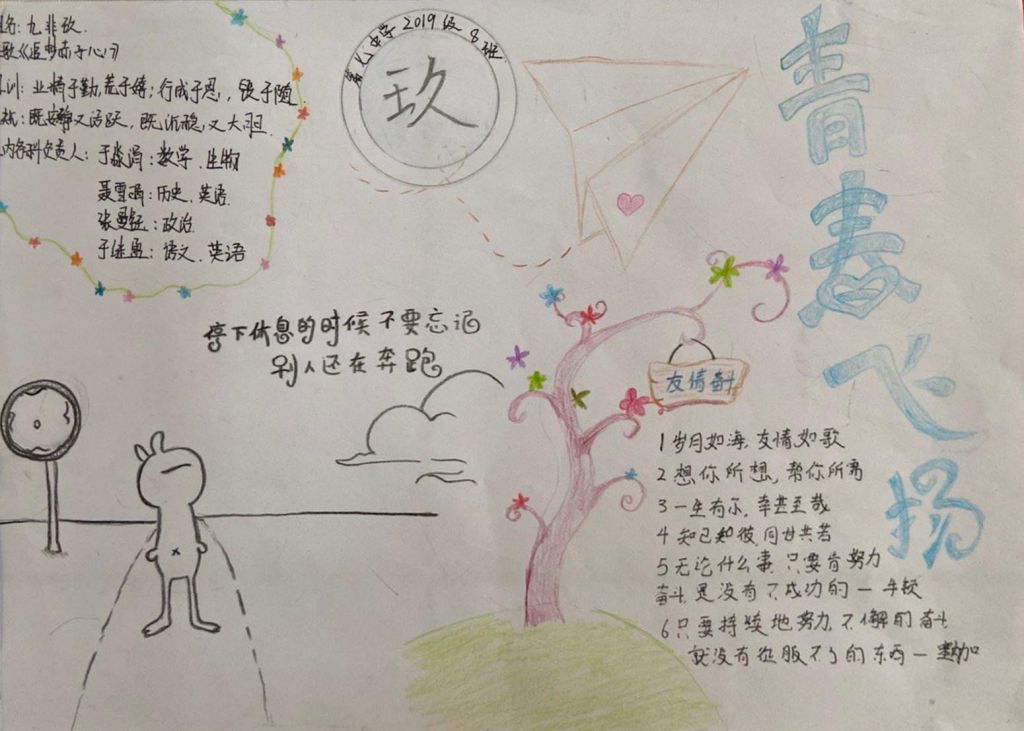 名：九非玖
歌《逆战南子心》
训：业精于勤，荒于嬉；行成于思，毁于随
既安静又活跃，既沉稳，又大胆
内各科负责人：于淼涓：数学、生物
聂雪涵：历史、英语
张曼钰：政治
语文、英语
中学2019级8班
玖
青春飞扬
停下休息的时候不要忘记
别人还在奔跑
友情奋斗
1 岁月如海，友情如歌
2 想你所想，帮你所需
3 一生有你，幸甚至哉
4 知己知彼，同甘共苦
5 无论什么事，只要肯努力
奋斗，是没有不成功的一牛顿
6 只要持续地努力，不懈的奋斗
就没有征服不了的东西一塞内加